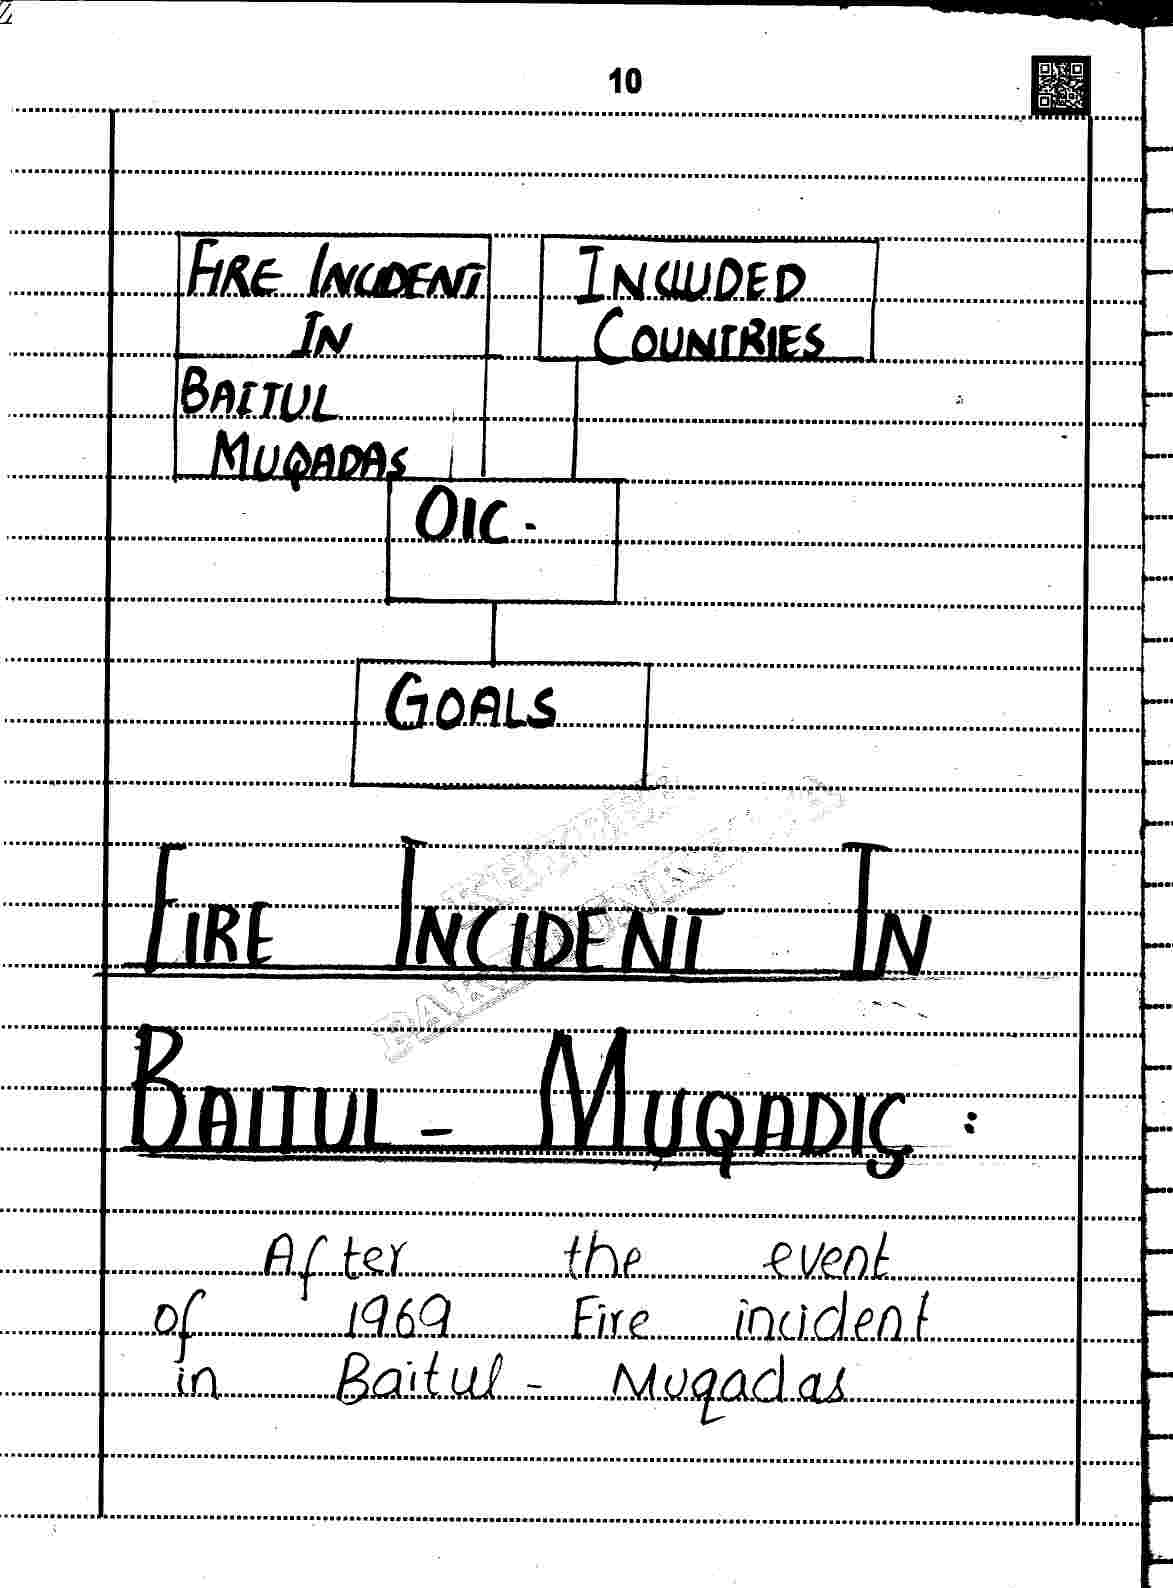 10
FIRE INCIDENT
IN
BAITUL
MUQADAS
INCLUDED
COUNTRIES
OIC.
GOALS
FIRE INCIDENT IN
BAITUL - MUQADIS :
After the event
of 1969 Fire incident
in Baitul - Muqadas